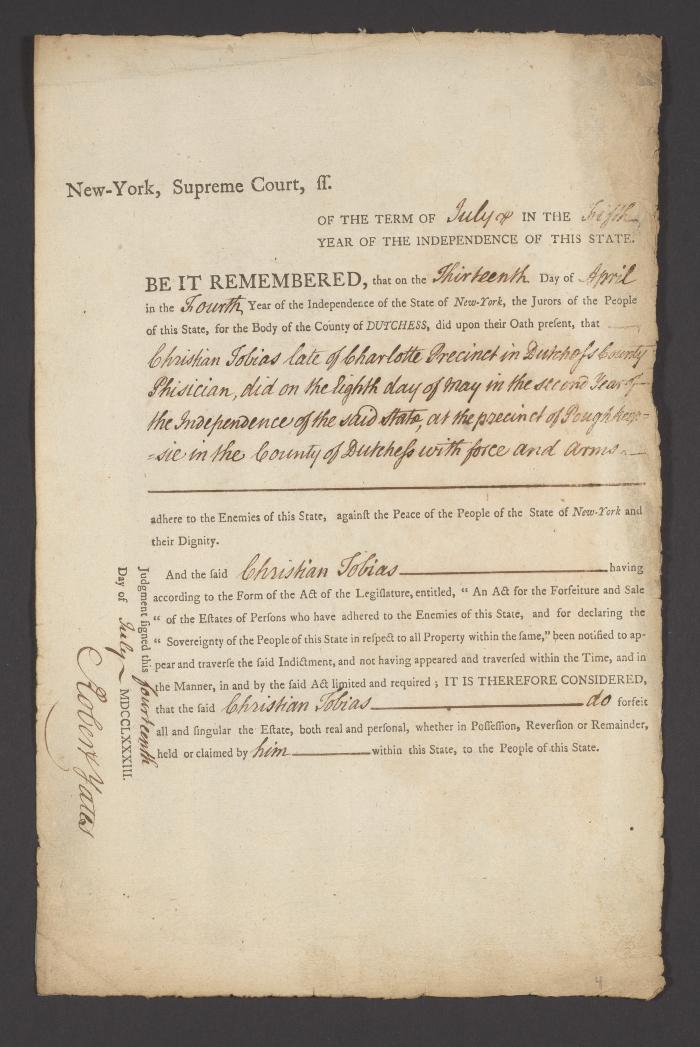 New-York, Supreme Court, ſſ.
OF THE TERM OF July IN THE Fifth
YEAR OF THE INDEPENDENCE OF THIS STATE.
BE IT REMEMBERED, that on the Thirteenth Day of April
in the Fourth Year of the Independence of the State of New-York, the Jurors of the People
of this State, for the Body of the County of DUTCHESS, did upon their Oath present, that
Christian Tobias late of Charlotte Precinct in Dutchess County
Phisician, did on the Eighth day of May in the second Year of
the Independence of the said State, at the precinct of Poughkeep=
=sie in the County of Dutchess with force and arms
adhere to the Enemies of this State, against the Peace of the People of the State of New-York and
their Dignity.
And the said Christian Tobias having
according to the Form of the Act of the Legiſlature, entitled, “ An Act for the Forfeiture and Sale
“ of the Eſtates of Perſons who have adhered to the Enemies of this State, and for declaring the
“ Sovereignty of the People of this State in reſpect to all Property within the ſame,” been notified to ap-
pear and traverſe the ſaid Indictment, and not having appeared and traverſed within the Time, and in
the Manner, in and by the ſaid Act limited and required ; IT IS THEREFORE CONSIDERED,
that the ſaid Christian Tobias do forfeit
all and ſingular the Eſtate, both real and perſonal, whether in Poſſeſſion, Reverſion or Remainder,
held or claimed by him within this State, to the People of this State.
Judgment ſigned this fourteenth
Day of July MDCCLXXXIII.
Robert Yates
4